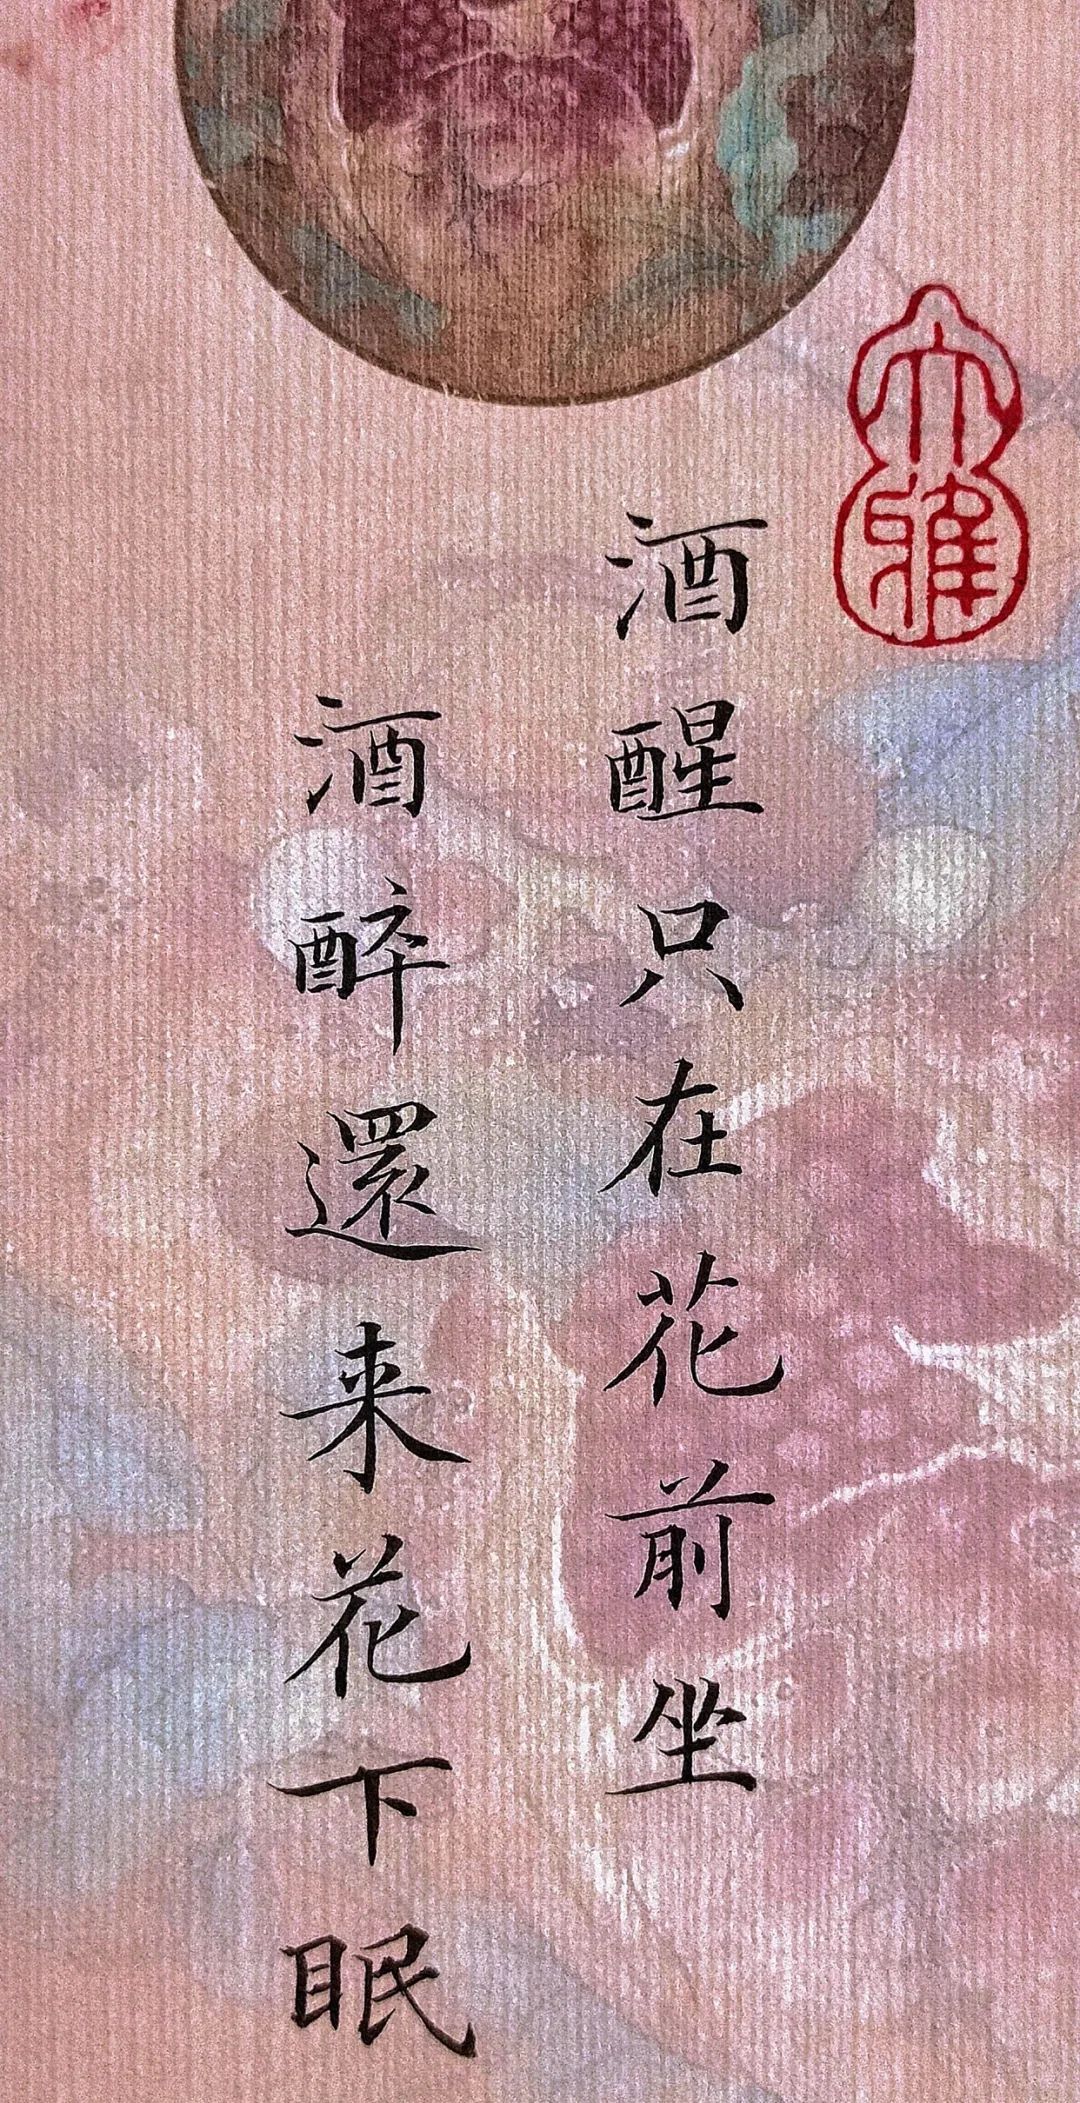 大雅
酒醒只在花前坐
酒醉還来花下眠